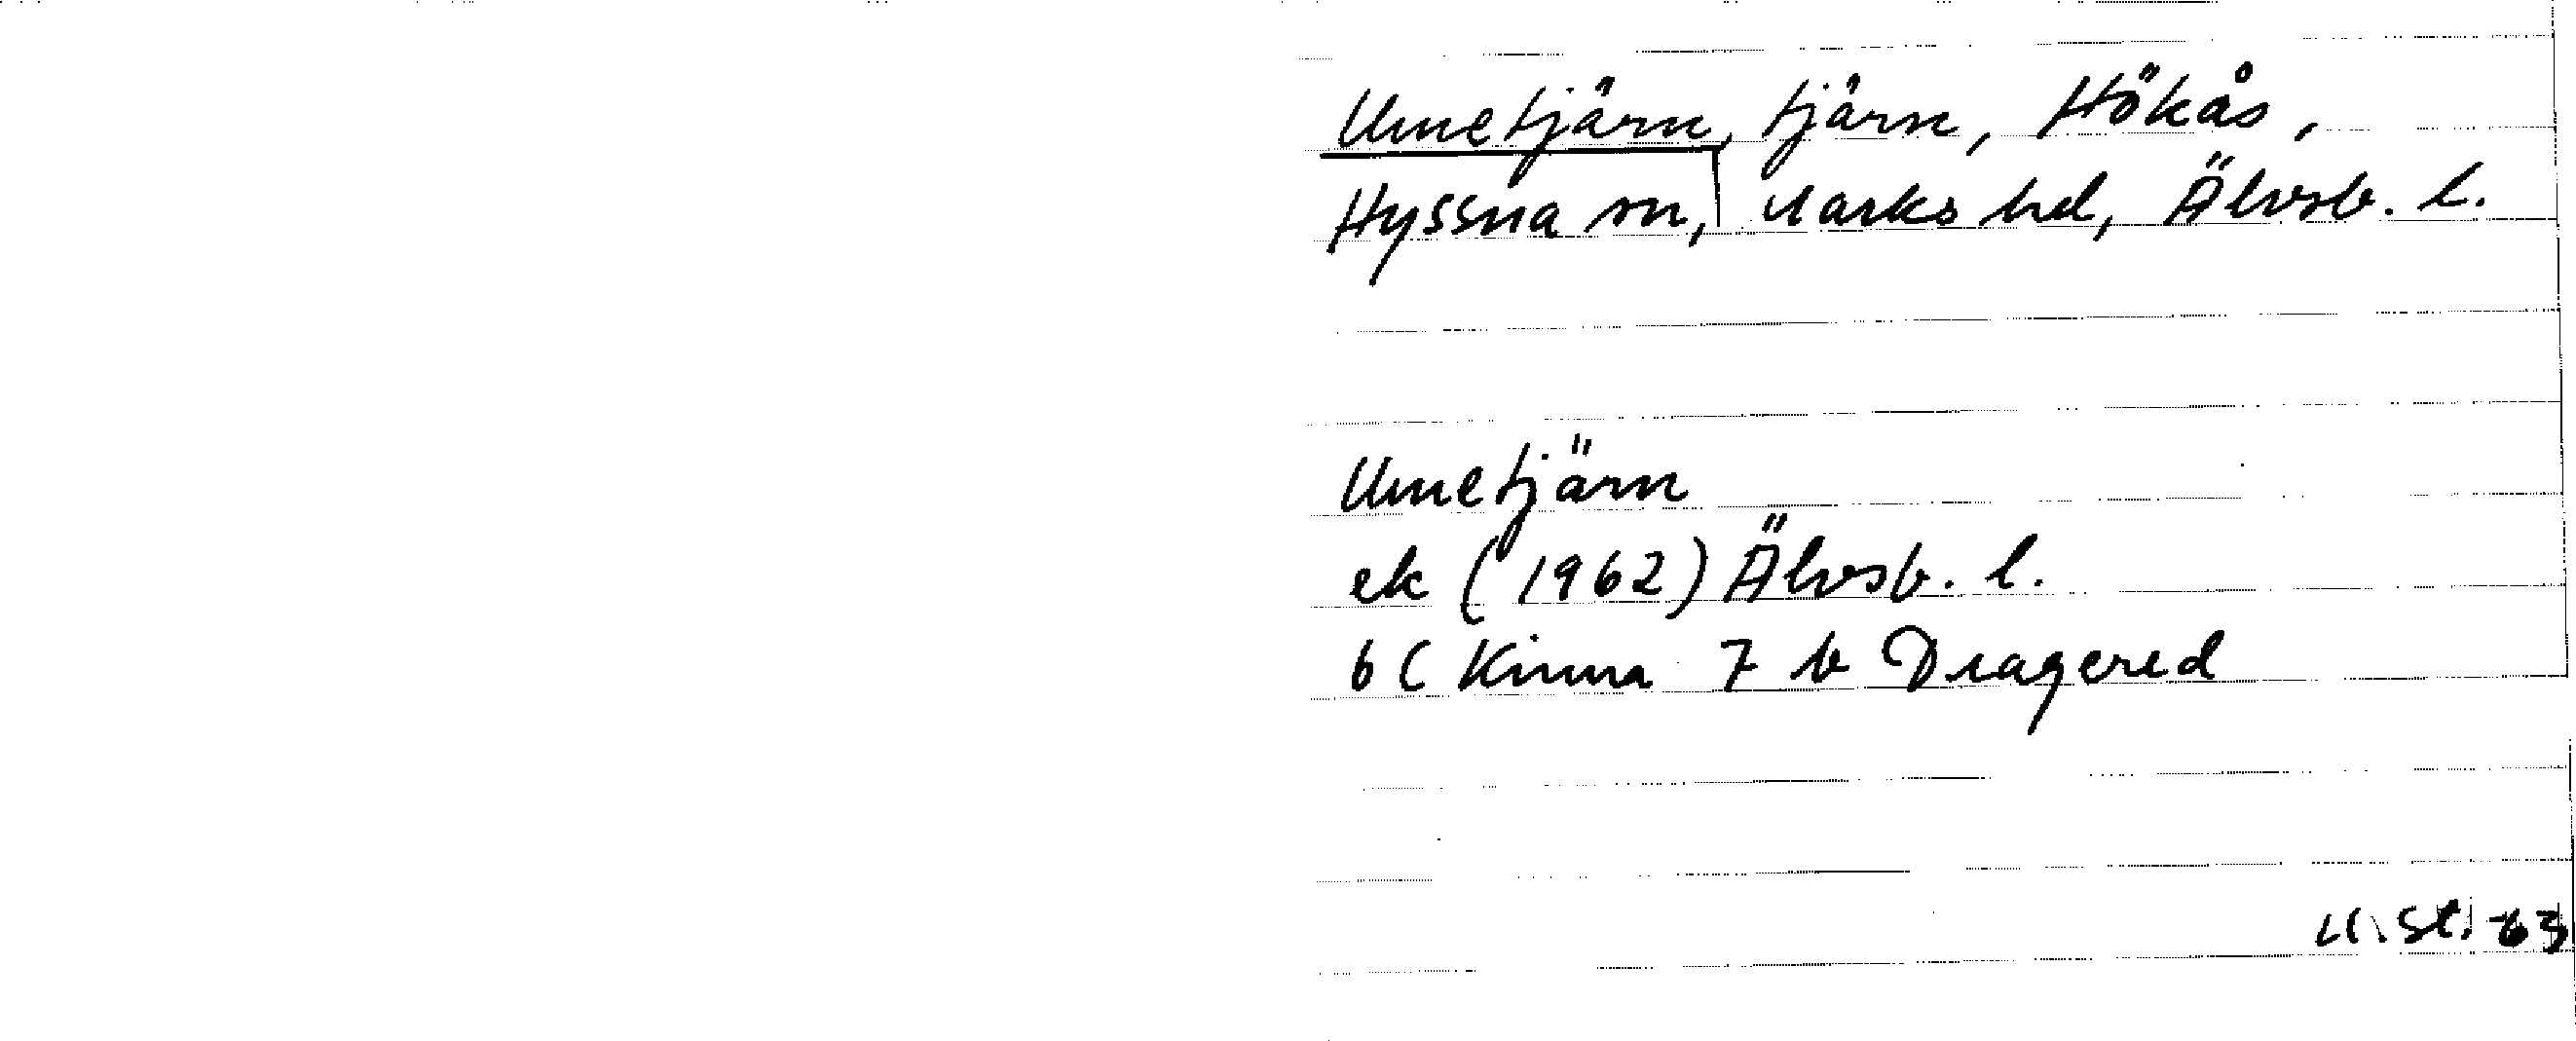 Umetjärn, tjärn, Hökås,
Hyssna sn, Marks hd, Älvsb. l.
Umetjärn
ek (1962) Älvsb. l.
6 C Kinna 7 b Dragered
M.St. -63